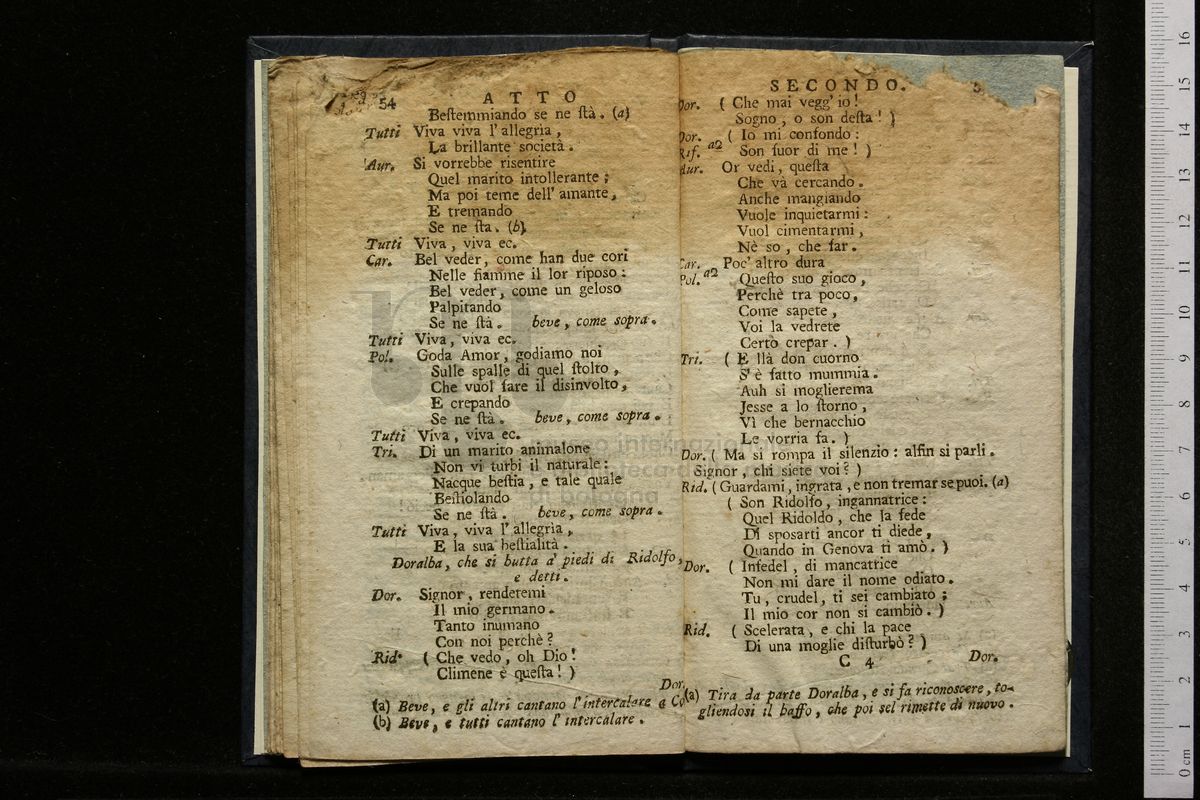 54
ATTO
Beſtemmiando se ne ſtà. (a)
Tutti Viva viva l'allegria,
La brillante società.
Aur. Si vorrebbe risentire
Quel marito intollerante;
Ma poi teme dell'amante,
E tremando
Se ne ſta. (b)
Tutti Viva, viva ec.
Car. Bel veder, come han due cori
Nelle fiamme il lor riposo:
Bel veder, come un geloso
Palpitando
Se ne ſtà. beve, come sopra.
Tutti Viva, viva ec.
Pol. Goda Amor, godiamo noi
Sulle spalle di quel ſtolto,
Che vuol fare il disinvolto,
E crepando
Se ne ſtà. beve, come sopra.
Tutti Viva, viva ec.
Tri. Di un marito animalone
Non vi turbi il naturale:
Nacque beſtia, e tale quale
Beſtiolando
Se ne ſtà. beve, come sopra.
Tutti Viva, viva l'allegria,
E la sua beſtialità.
Doralba, che si butta a' piedi di Ridolfo,
e detti.
Dor. Signor, rendetemi
Il mio germano.
Tanto inumano
Con noi perchè?
Rid. ( Che vedo, oh Dio!
Climene è queſta! )
Dor.
(a) Beve, e gli altri cantano l'intercalare a
(b) Beve, e tutti cantano l'intercalare.
SECONDO.
Dor. ( Che mai vegg' io!
Sogno, o son deſta! )
Dor. ( Io mi confondo:
Rif. a2 Son fuor di me! )
Aur. Or vedi, queſta
Che và cercando.
Anche mangiando
Vuole inquietarmi:
Vuol cimentarmi,
Nè so, che far.
Car. Poc' altro dura
Pol. a2 Queſto suo gioco,
Perchè tra poco,
Come sapete,
Voi la vedrete
Certo crepar. )
Tri. ( E llà don cuorno
S' è fatto mummia.
Auh si moglierema
Jesse a lo ſtorno,
Vì che bernacchio
Le vorria fa. )
Dor. ( Ma si rompa il silenzio: alfin si parli.
Signor, chi siete voi? )
Rid. ( Guardami, ingrata, e non tremar se puoi. (a)
( Son Ridolfo, ingannatrice:
Quel Ridoldo, che la fede
Di sposarti ancor ti diede,
Quando in Genova ti amò. )
Dor. ( Infedel, di mancatrice
Non mi dare il nome odiato.
Tu, crudel, ti sei cambiato;
Il mio cor non si cambiò. )
Rid. ( Scelerata, e chi la pace
Di una moglie diſturbò? )
C 4 Dor.
(a) Tira da parte Doralba, e si fa riconoscere, to-
gliendosi il baffo, che poi sel rimette di nuovo.
museo internazionale
biblioteca della
di bologna
0 cm 1 2 3 4 5 6 7 8 9 10 11 12 13 14 15 16